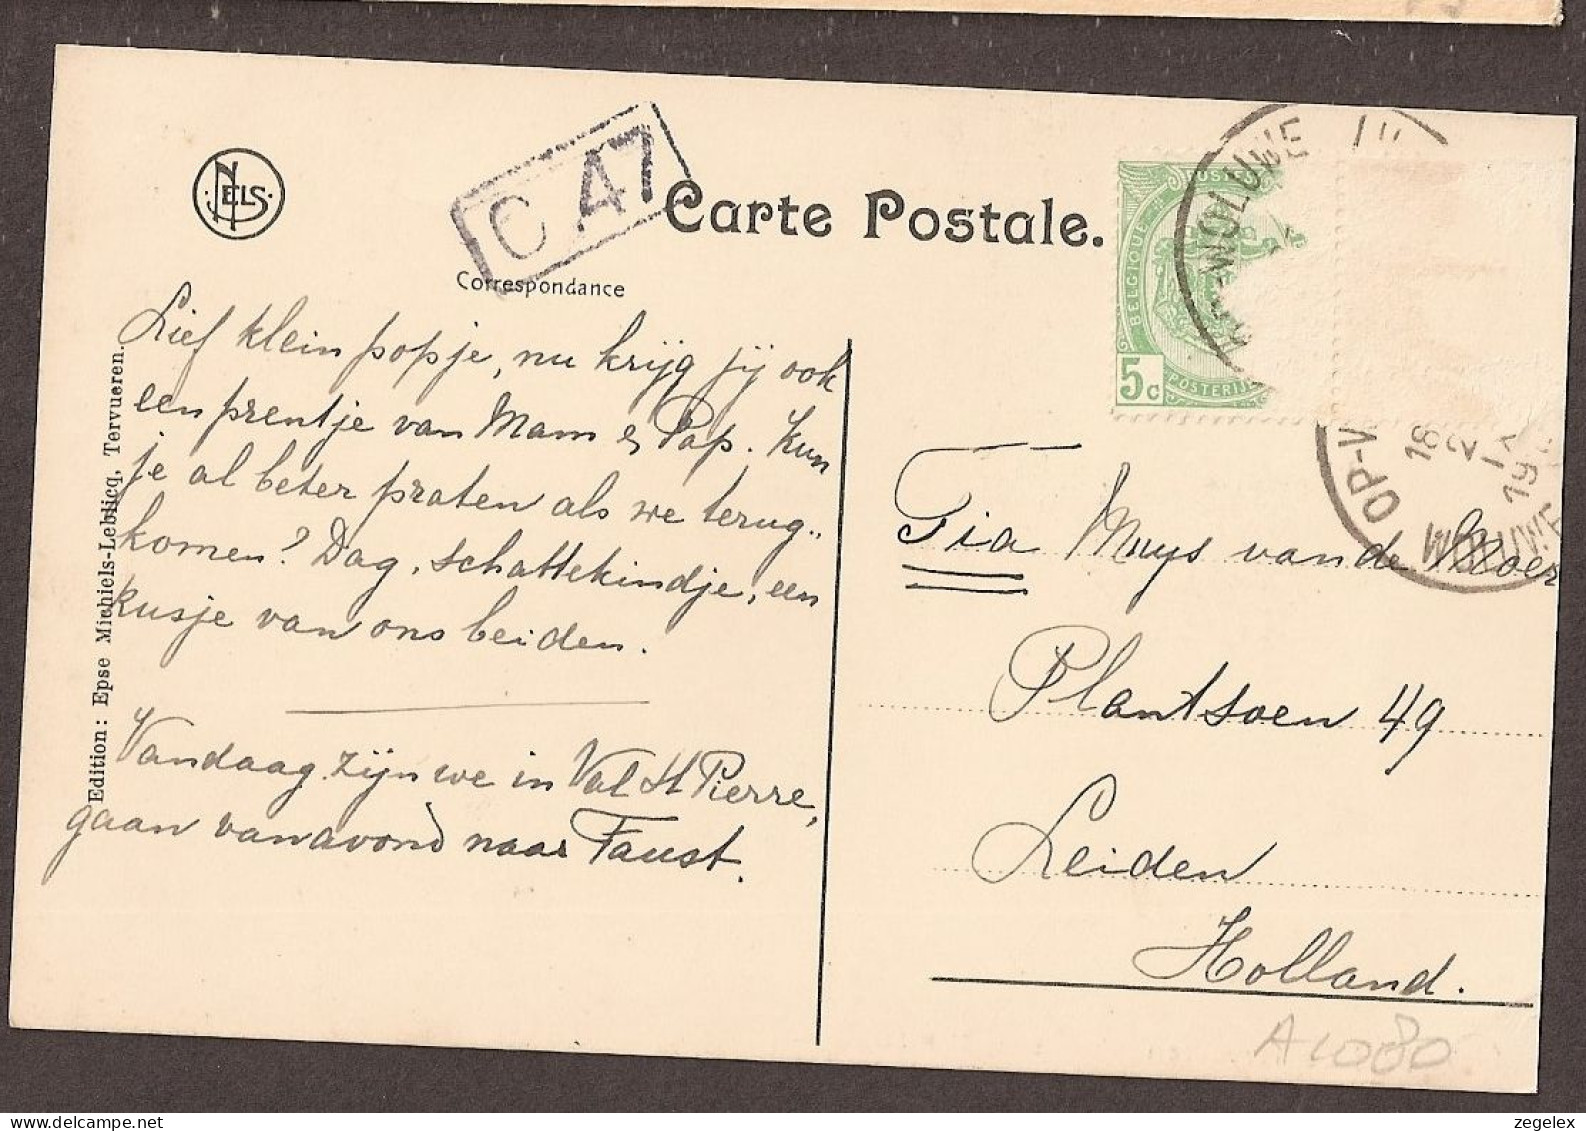 NELS
C 47
Carte Postale.
Correspondance
Lief klein popje, nu krijg jij ook
een prentje van Mam & Pap. Kun
je al beter praten als we terug..
komen? Dag, schattekindje, een
kusje van ons beiden.
Vandaag zijn we in Val St Pierre,
gaan vanavond naar Faust.
Edition: Epse Michiels-Leblicq, Tervueren.
BELGIQUE
POSTERIJ
5 c
WOLUWE
OP-
18
2
19
WOLUWE
Tia Muys van de Moer
Plantsoen 49
Leiden
Holland.
A1080
www.delcampe.net
zegelex